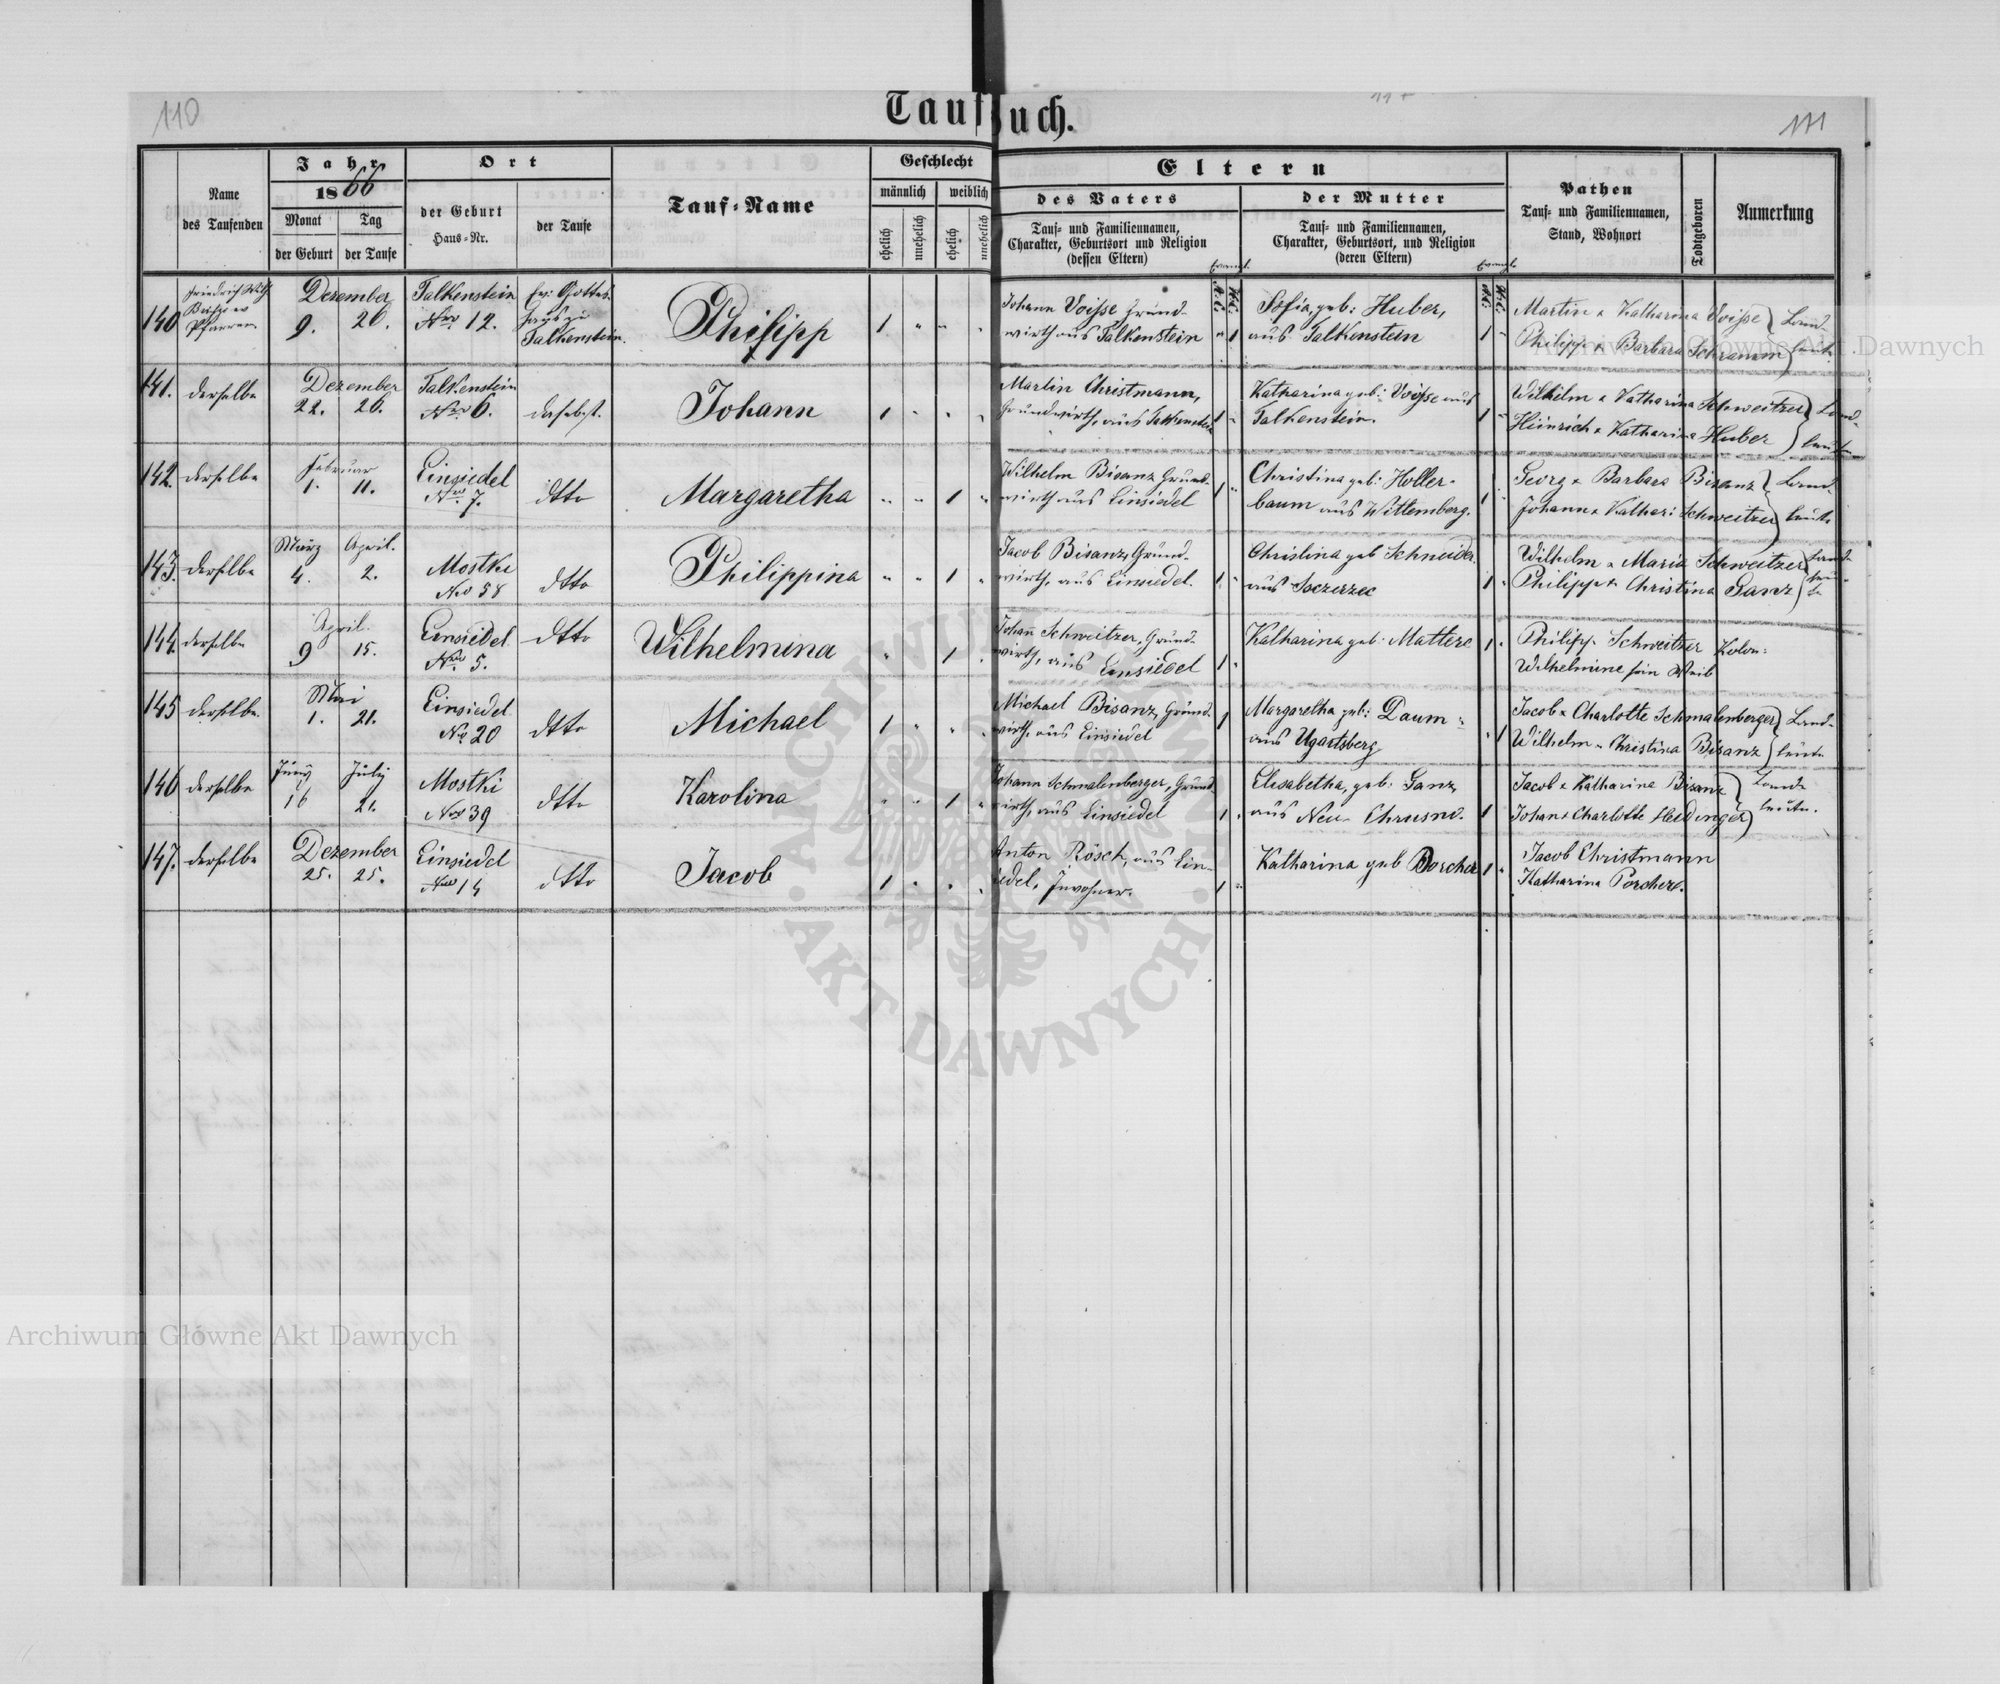 110
Tauf
buch.
111
Name
des Taufenden
Jahr
1866
Monat
Tag
der Geburt
der Taufe
Ort
der Geburt
Haus=Nr.
der Taufe
Tauf=Name
Geschlecht
männlich
weiblich
ehelich
unehelich
ehelich
unehelich
Eltern
des Vaters
Tauf= und Familiennamen,
Charakter, Geburtsort und Religion
(dessen Eltern)
der Mutter
Tauf= und Familiennamen,
Charakter, Geburtsort, und Religion
(deren Eltern)
Pathen
Tauf= und Familiennamen,
Stand, Wohnort
Todtgeboren
Anmerkung
140
Friedrich Wilh.
Pfarrer
Dezember
9. 26.
Falkenstein
Nro 12.
ev. Gottes-
haus zu
Falkenstein.
Philipp
1
Johann Voisse Grund-
wirth aus Falkenstein
1
Sofia, geb: Huber,
aus Falkenstein
1
Martin & Katharina Voisse
Philipp & Barbara Schramm
Land-
leute
141.
derselbe
Dezember
22. 26.
Falkenstein
Nro 6.
daselbst.
Johann
1
Martin Christmann,
Grundwirth, aus Falkenstein
1
Katharina geb: Voisse aus
Falkenstein.
1
Wilhelm & Katharina Schweitzer
Heinrich & Katharina Huber
Land-
leute
142.
derselbe
Februar
1. 11.
Einsiedel
Nro 7.
dtto
Margaretha
1
Wilhelm Bisanz Grund-
wirth aus Einsiedel
1
Christina geb: Holler-
baum aus Wittemberg.
1
Georg & Barbara Bisanz
Johann & Kathari Schweitzer
Land-
leute
143.
derselbe
März April.
4. 2.
Mostki
No 58
dtto
Philippina
1
Jacob Bisanz, Grund-
wirth, aus Einsiedel.
1
Christina geb Schneider
aus Sczerzec
1
Wilhelm & Maria Schweitzer
Philipp & Christina Ganz
Land-
leu-
te
144.
derselbe
April.
9 15.
Einsiedel
Nro 5.
dtto
Wilhelmina
1
Johan Schweitzer, Grund-
wirth, aus Einsiedel
1
Katharina geb: Mattere
1
Philipp Schweitzer Kolon:
Wilhelmine sein Weib
145
derselbe.
Mai
1. 21.
Einsiedel
No 20
dtto
Michael
1
Michael Bisanz, Grund-
wirth, aus Einsiedel
1
Margaretha geb: Daum
aus Ugartsberg
1
Jacob & Charlotte Schmalenberger
Wilhelm & Christina Bisanz
Land-
leute
146
derselbe
Juny July
16 21.
Mostki
Nro 39
dtto
Karolina
1
Johann Schmalenberger, Grund-
wirth, aus Einsiedel
1
Elisabetha, geb: Ganz,
aus Neu-Chrusno.
1
Jacob & Katharina Bisanz
Johan & Charlotte Heidinger
Land-
leute.
147.
derselbe
Dezember
25. 25.
Einsiedel
Nro 14
dtto
Jacob
1
Anton Rösch, aus Ein-
siedel, Inwohner.
1
Katharina geb Borscher
1
Jacob Christmann
Katharina Porscher.
Archiwum Główne Akt Dawnych
Archiwum Główne Akt Dawnych
ARCHIWUM GŁÓWNE AKT DAWNYCH